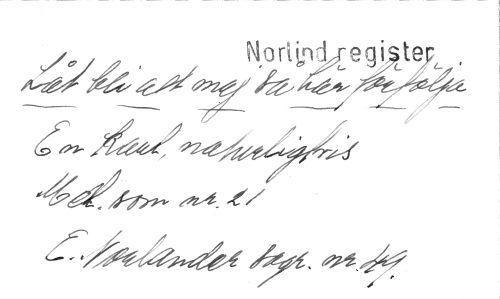 Norlind register
Låt bli att mej så här förfölja
En Karl, naturligtvis
Mel. som nr. 21
E. Norlander sagr. nr. 49.